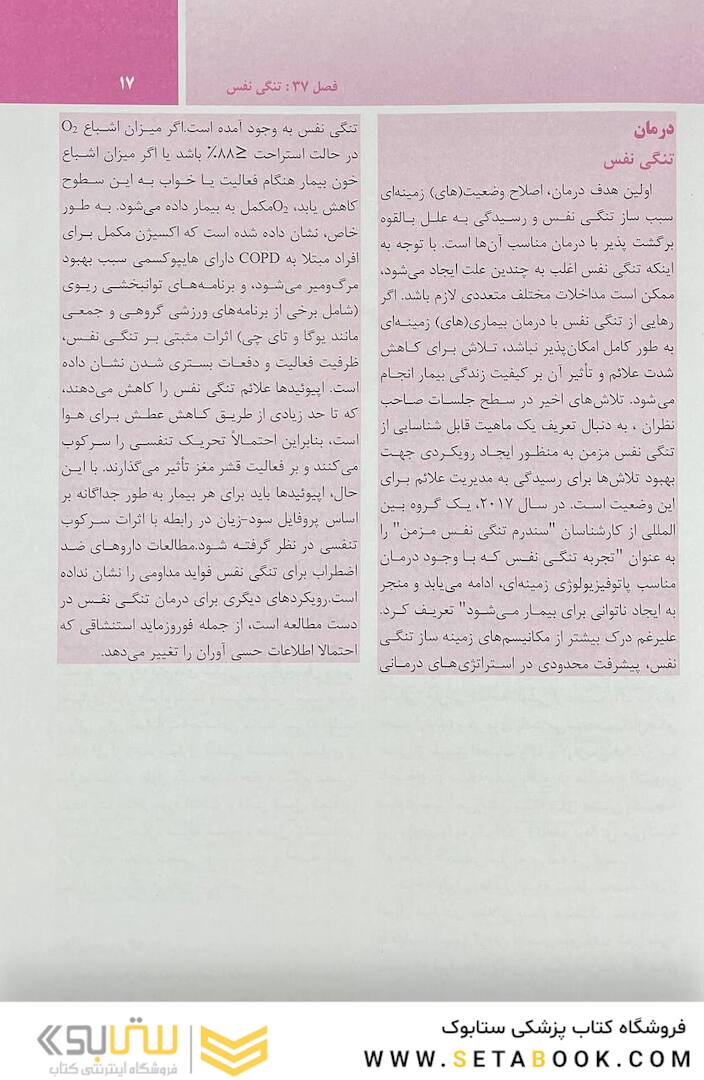 فصل ۳۷: تنگی نفس
۱۷
درمان
تنگی نفس
اولین هدف درمان، اصلاح وضعیت(های) زمینه‌ای
سبب ساز تنگی نفس و رسیدگی به علل بالقوه
برگشت پذیر با درمان مناسب آن‌ها است. با توجه به
اینکه تنگی نفس اغلب به چندین علت ایجاد می‌شود،
ممکن است مداخلات مختلف متعددی لازم باشد. اگر
رهایی از تنگی نفس با درمان بیماری(های) زمینه‌ای
به طور کامل امکان‌پذیر نباشد، تلاش برای کاهش
شدت علائم و تأثیر آن بر کیفیت زندگی بیمار انجام
می‌شود. تلاش‌های اخیر در سطح جلسات صاحب
نظران ، به دنبال تعریف یک ماهیت قابل شناسایی از
تنگی نفس مزمن به منظور ایجاد رویکردی جهت
بهبود تلاش‌ها برای رسیدگی به مدیریت علائم برای
این وضعیت است. در سال ۲۰۱۷، یک گروه بین
المللی از کارشناسان "سندرم تنگی نفس مزمن" را
به عنوان "تجربه تنگی نفس که با وجود درمان
مناسب پاتوفیزیولوژی زمینه‌ای، ادامه می‌یابد و منجر
به ایجاد ناتوانی برای بیمار می‌شود" تعریف کرد.
علیرغم درک بیشتر از مکانیسم‌های زمینه ساز تنگی
نفس، پیشرفت محدودی در استراتژی‌های درمانی
تنگی نفس به وجود آمده است.اگر میزان اشباع O2
در حالت استراحت ≤۸۸٪ باشد یا اگر میزان اشباع
خون بیمار هنگام فعالیت یا خواب به این سطوح
کاهش یابد، O2مکمل به بیمار داده می‌شود. به طور
خاص، نشان داده شده است که اکسیژن مکمل برای
افراد مبتلا به COPD دارای هایپوکسمی سبب بهبود
مرگ‌ومیر می‌شود، و برنامه‌های توانبخشی ریوی
(شامل برخی از برنامه‌های ورزشی گروهی و جمعی
مانند یوگا و تای چی) اثرات مثبتی بر تنگی نفس،
ظرفیت فعالیت و دفعات بستری شدن نشان داده
است. اپیوئیدها علائم تنگی نفس را کاهش می‌دهند،
که تا حد زیادی از طریق کاهش عطش برای هوا
است، بنابراین احتمالاً تحریک تنفسی را سرکوب
می‌کنند و بر فعالیت قشر مغز تأثیر می‌گذارند. با این
حال، اپیوئیدها باید برای هر بیمار به طور جداگانه بر
اساس پروفایل سود-زیان در رابطه با اثرات سرکوب
تنفسی در نظر گرفته شود.مطالعات داروهای ضد
اضطراب برای تنگی نفس فواید مداومی را نشان نداده
است.رویکردهای دیگری برای درمان تنگی نفس در
دست مطالعه است، از جمله فوروزماید استنشاقی که
احتمالا اطلاعات حسی آوران را تغییر می‌دهد.
فروشگاه کتاب پزشکی ستابوک
WWW.SETABOOK.COM
ستابوک
فروشگاه اینترنتی کتاب